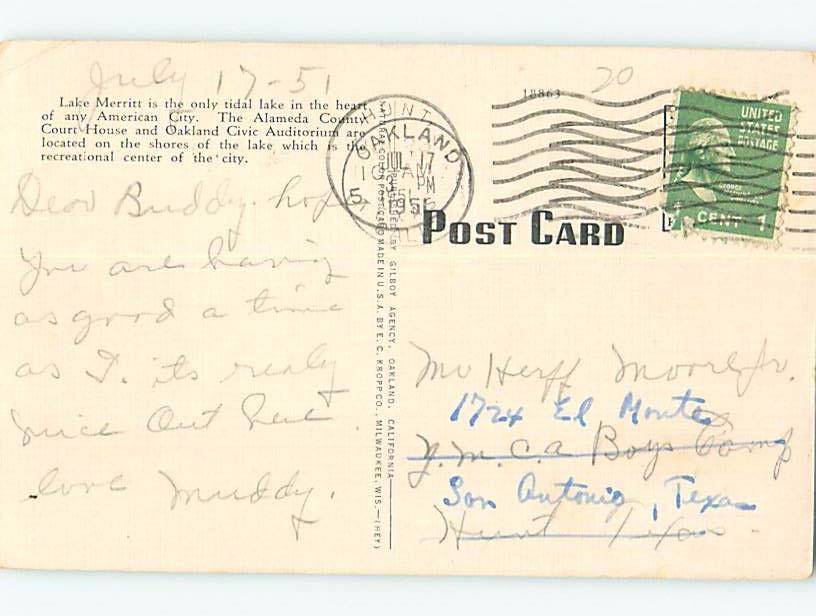 July 17-51
20
18863
Lake Merritt is the only tidal lake in the heart
of any American City. The Alameda County
Court House and Oakland Civic Auditorium are
located on the shores of the lake which is the
recreational center of the city.
POINT
OAKLAND
JUL 17
PM
UNITED
STATES
POSTAGE
GEORGE
1 CENT 1
POST CARD
Dear Buddy. hope
you are having
as good a time
as I. its realy
nice Out here.
love Muddy.
NATURAL COLOR POST CARD MADE IN U.S.A. BY E. C. KROPP CO., MILWAUKEE, WIS.—(HEY)
PUBLISHED BY GILBOY AGENCY, OAKLAND, CALIFORNIA
Mr Herff Moore Jr.
1724 El Monte
Y.M.C.A Boys Camp
San Antonio, Texas
Hunt Texas.